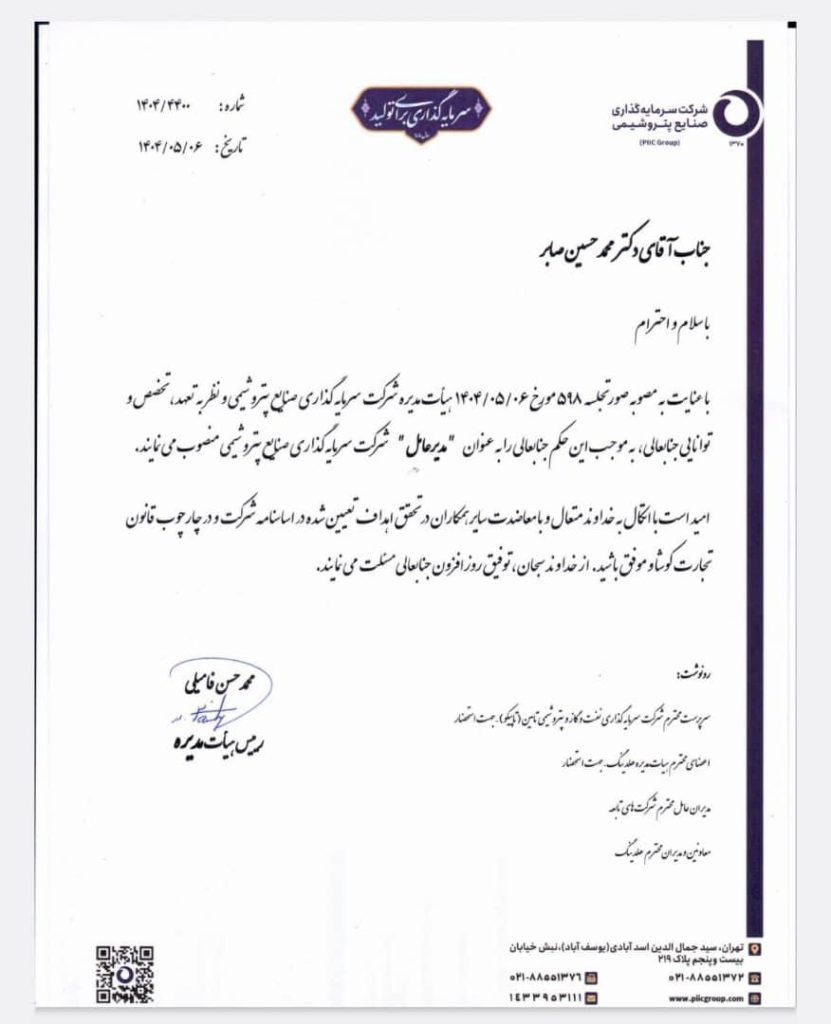 شرکت سرمایه‌گذاری
صنایع پتروشیمی
(PIIC Group)
۱۳۷۰
سرمایه‌گذاری برای تولید
شماره: ۱۴۰۴/۴۴۰۰
تاریخ: ۱۴۰۴/۰۵/۰۶
جناب آقای دکتر محمد حسین صابر
با سلام و احترام
با عنایت به مصوبه صورتجلسه ۵۹۸ مورخ ۱۴۰۴/۰۵/۰۶ هیأت مدیره شرکت سرمایه گذاری صنایع پتروشیمی و نظر به تعهد، تخصص و
توانایی جنابعالی، به موجب این حکم جنابعالی را به عنوان "مدیرعامل" شرکت سرمایه گذاری صنایع پتروشیمی منصوب می نمایند.
امید است با اتکال به خداوند متعال و با معاضدت سایر همکاران در تحقق اهداف تعیین شده در اساسنامه شرکت و در چارچوب قانون
تجارت کوشا و موفق باشید. از خداوند سبحان، توفیق روز افزون جنابعالی مسئلت می نمایند.
محمد حسن فامیلی
رئیس هیأت مدیره
رونوشت:
سرپرست محترم شرکت سرمایه گذاری نفت و گاز و پتروشیمی تامین (تاپیکو). جهت استحضار
اعضای محترم هیات مدیره هلدینگ. جهت استحضار
مدیران عامل محترم شرکت های تابعه
معاونین و مدیران محترم هلدینگ
تهران، سید جمال الدین اسد آبادی(یوسف آباد)،نبش خیابان
بیست وپنجم پلاک ۲۱۹
۰۲۱-۸۸۵۵۱۳۷۲
۰۲۱-۸۸۵۵۱۳۷۶
www.piicgroup.com
۱۴۳۳۹۵۳۱۱۱